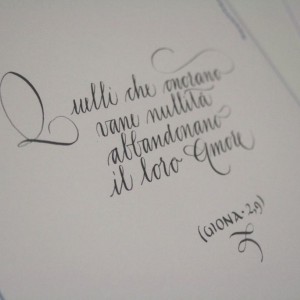 Quelli che onorano
vane nullità
abbandonano
il loro Amore
(GIONA - 2,9)